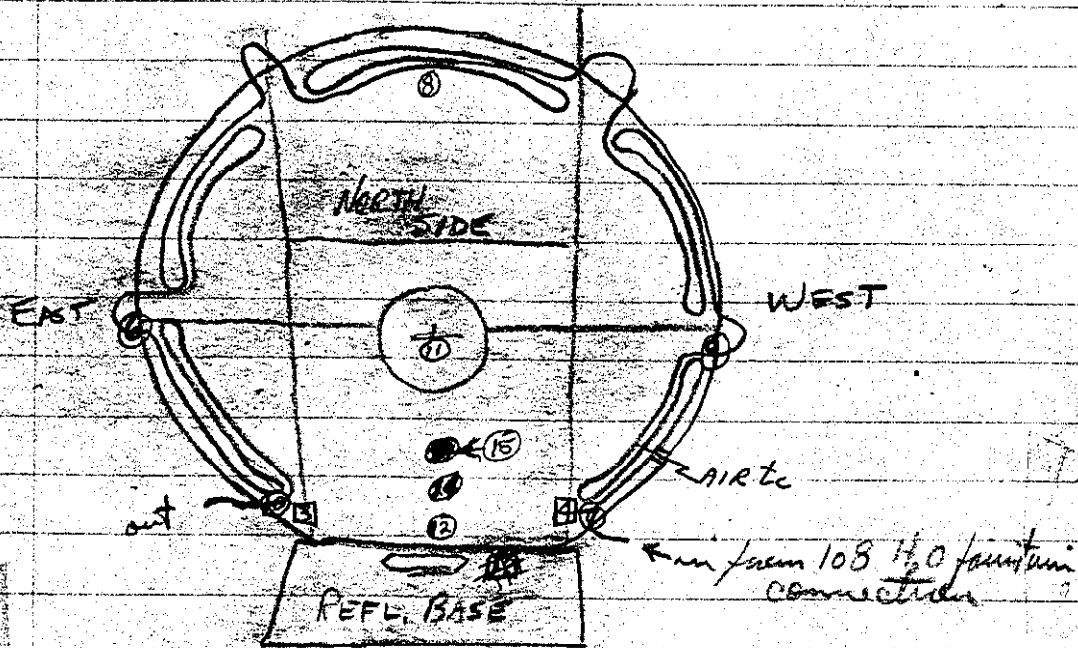 8
NORTH
SIDE
EAST
WEST
11
15
AIR tc
out
3
4
12
← in from 108 H₂O fountain
connection
REFL. BASE